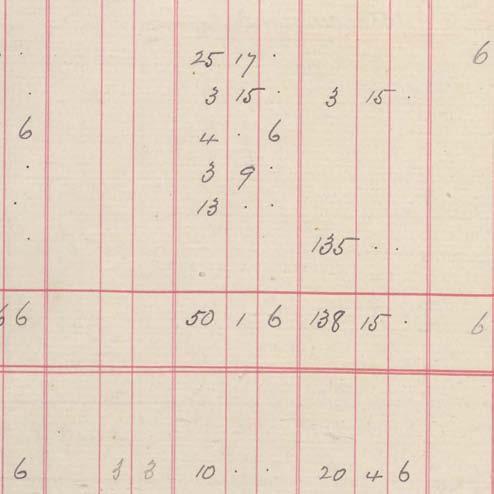 · 25 17 · 6
· 3 15 · 3 15 ·
6 4 · 6
· 3 9 ·
· 13 · ·
· 135 · ·
6 6 50 1 6 138 15 · 6
6 3 3 10 · · 20 4 6